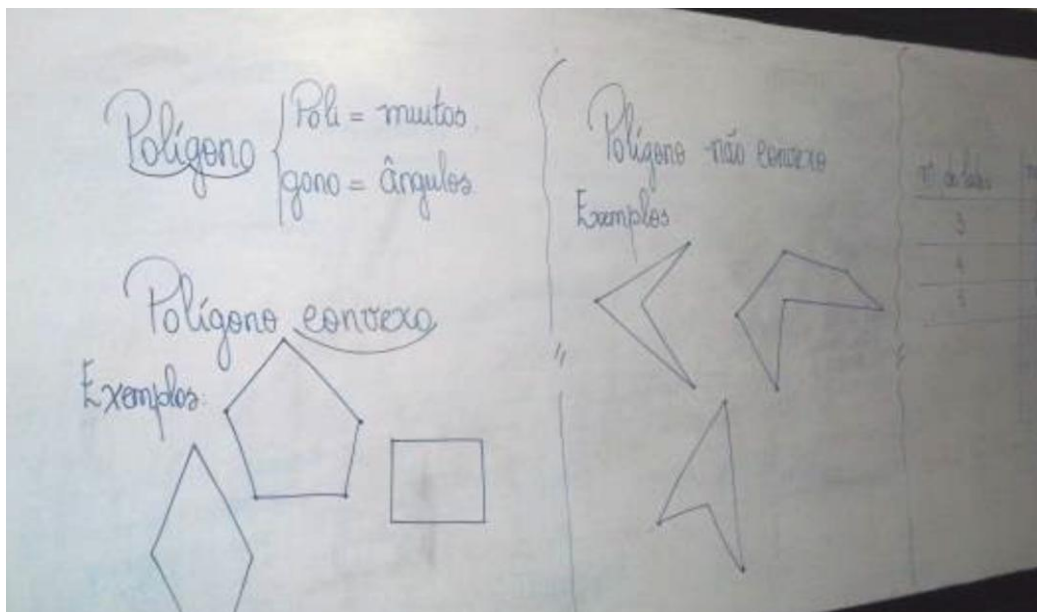 Polígono
Poli = muitos
gono = ângulos
Polígono convexo
Exemplos:
Polígono não convexo
Exemplos
nº de lados
3
4
5